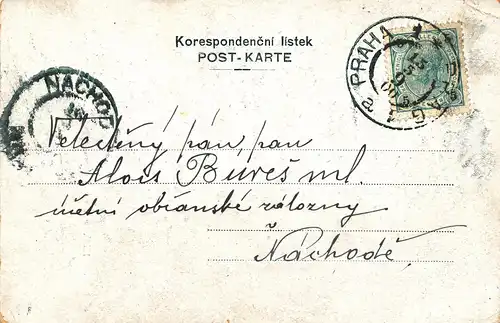 Korespondenční lístek
POST-KARTE
PRAHA
NÁCHOD
Velectěný pán, pan
Alois Bureš ml.
účetní občanské záložny
Náchodě